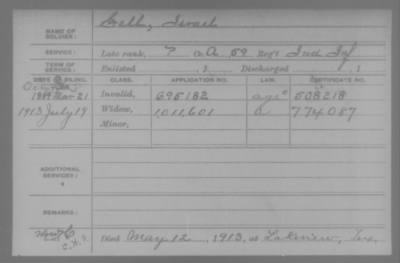 NAME OF SOLDIER: Israel
SERVICE: Late rank, ? Co. A, 59 Reg't Ind Inf
TERM OF SERVICE: Enlisted , 1 Discharged , 1
DATE OF FILING. CLASS. APPLICATION NO. LAW. CERTIFICATE NO.
Mar 21 Invalid, 695182 508218
1913 July 19 Widow, 1,011,601 774087
Minor,
ADDITIONAL SERVICES:
REMARKS:
Died May 12, 1913, at Lakeview, Tex.